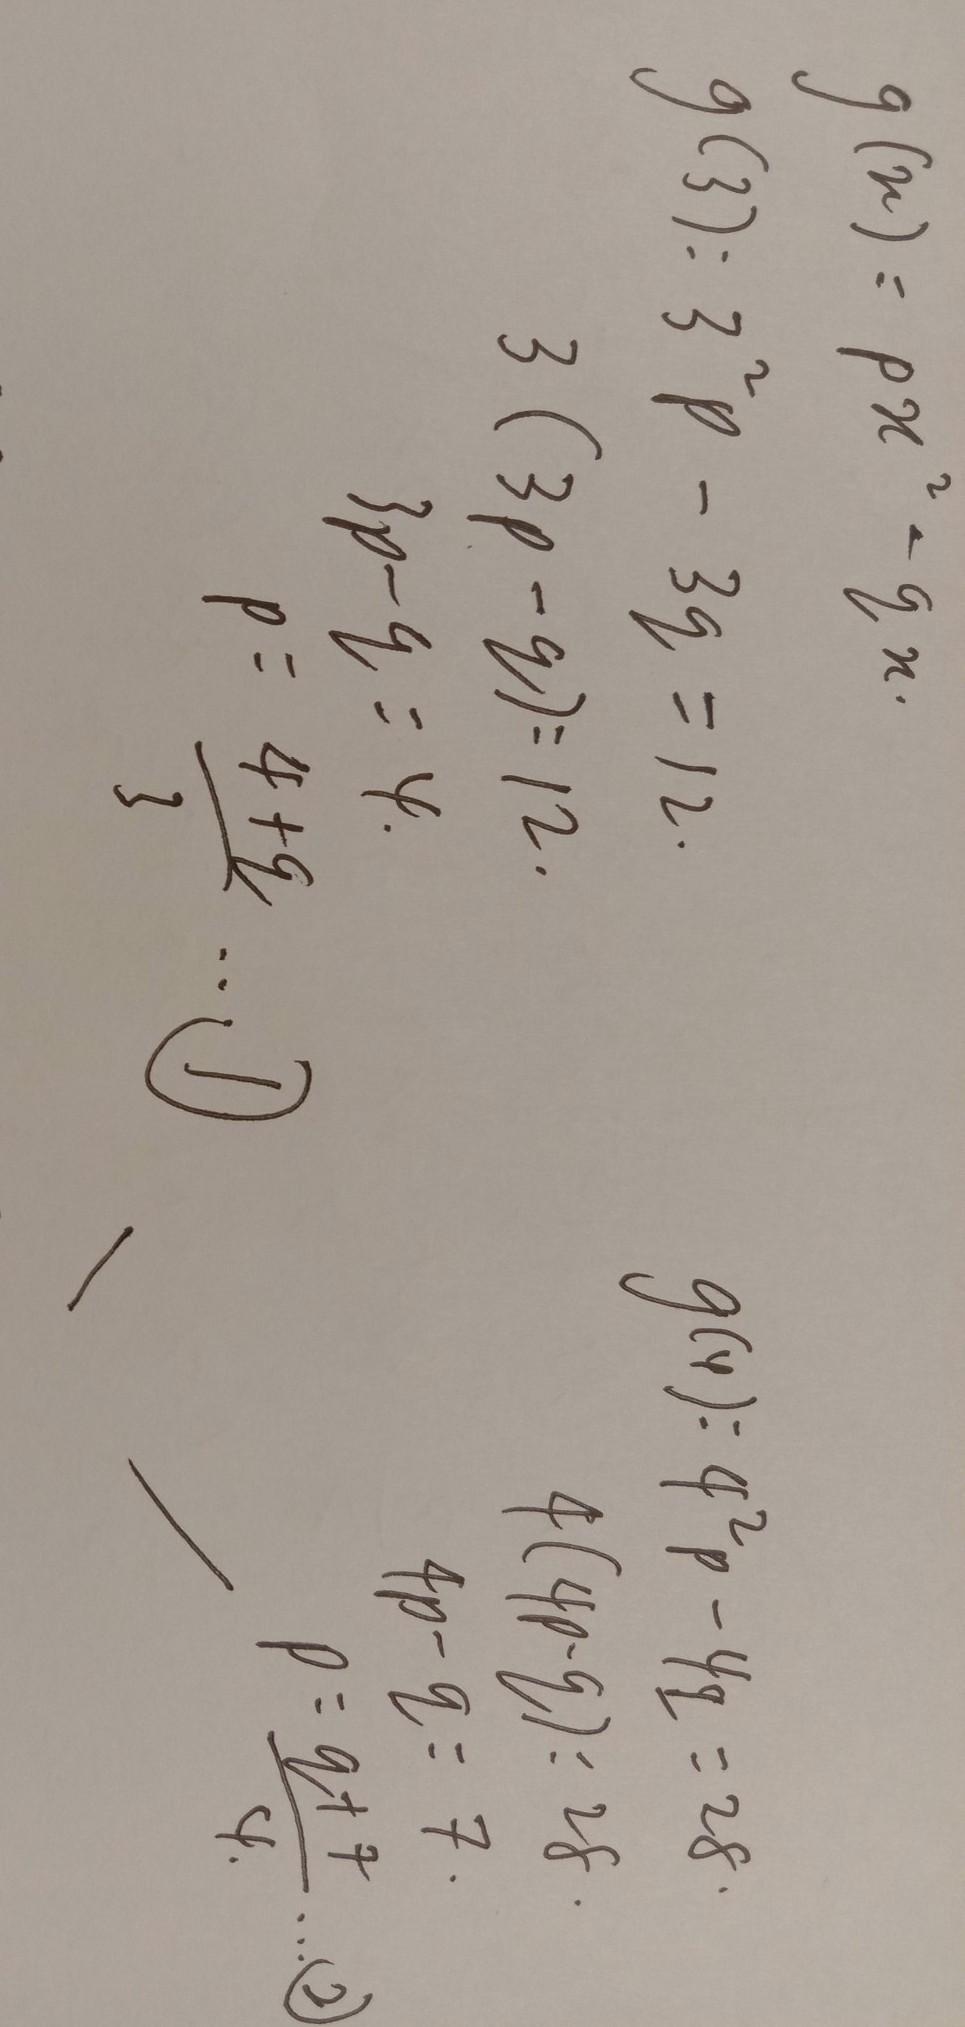 g(x) = px² - qx.
g(3) = 3²p - 3q = 12.
3(3p - q) = 12.
3p - q = 4.
p = 4+q / 3 ... ①
g(4) = 4²p - 4q = 28.
4(4p - q) = 28.
4p - q = 7.
p = q+7 / 4. ... ②